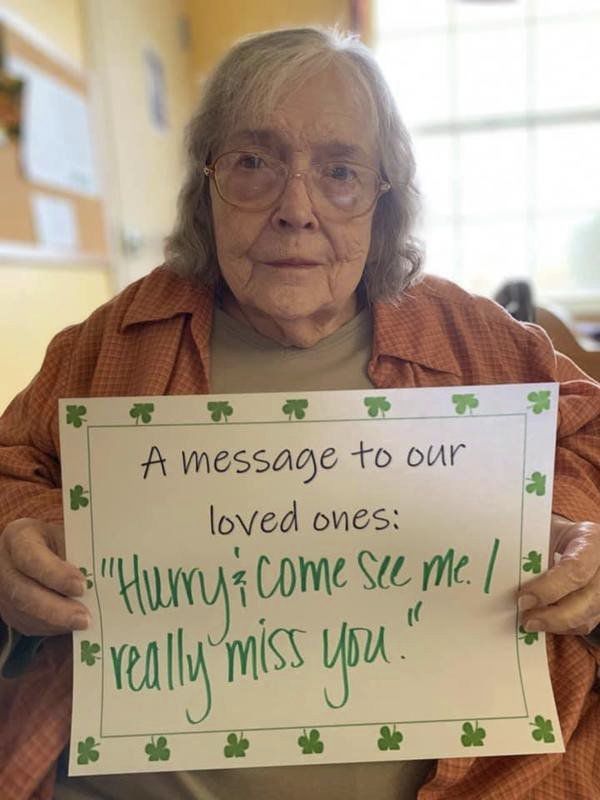 A message to our
loved ones:
"Hurry & come see me. I
really miss you."